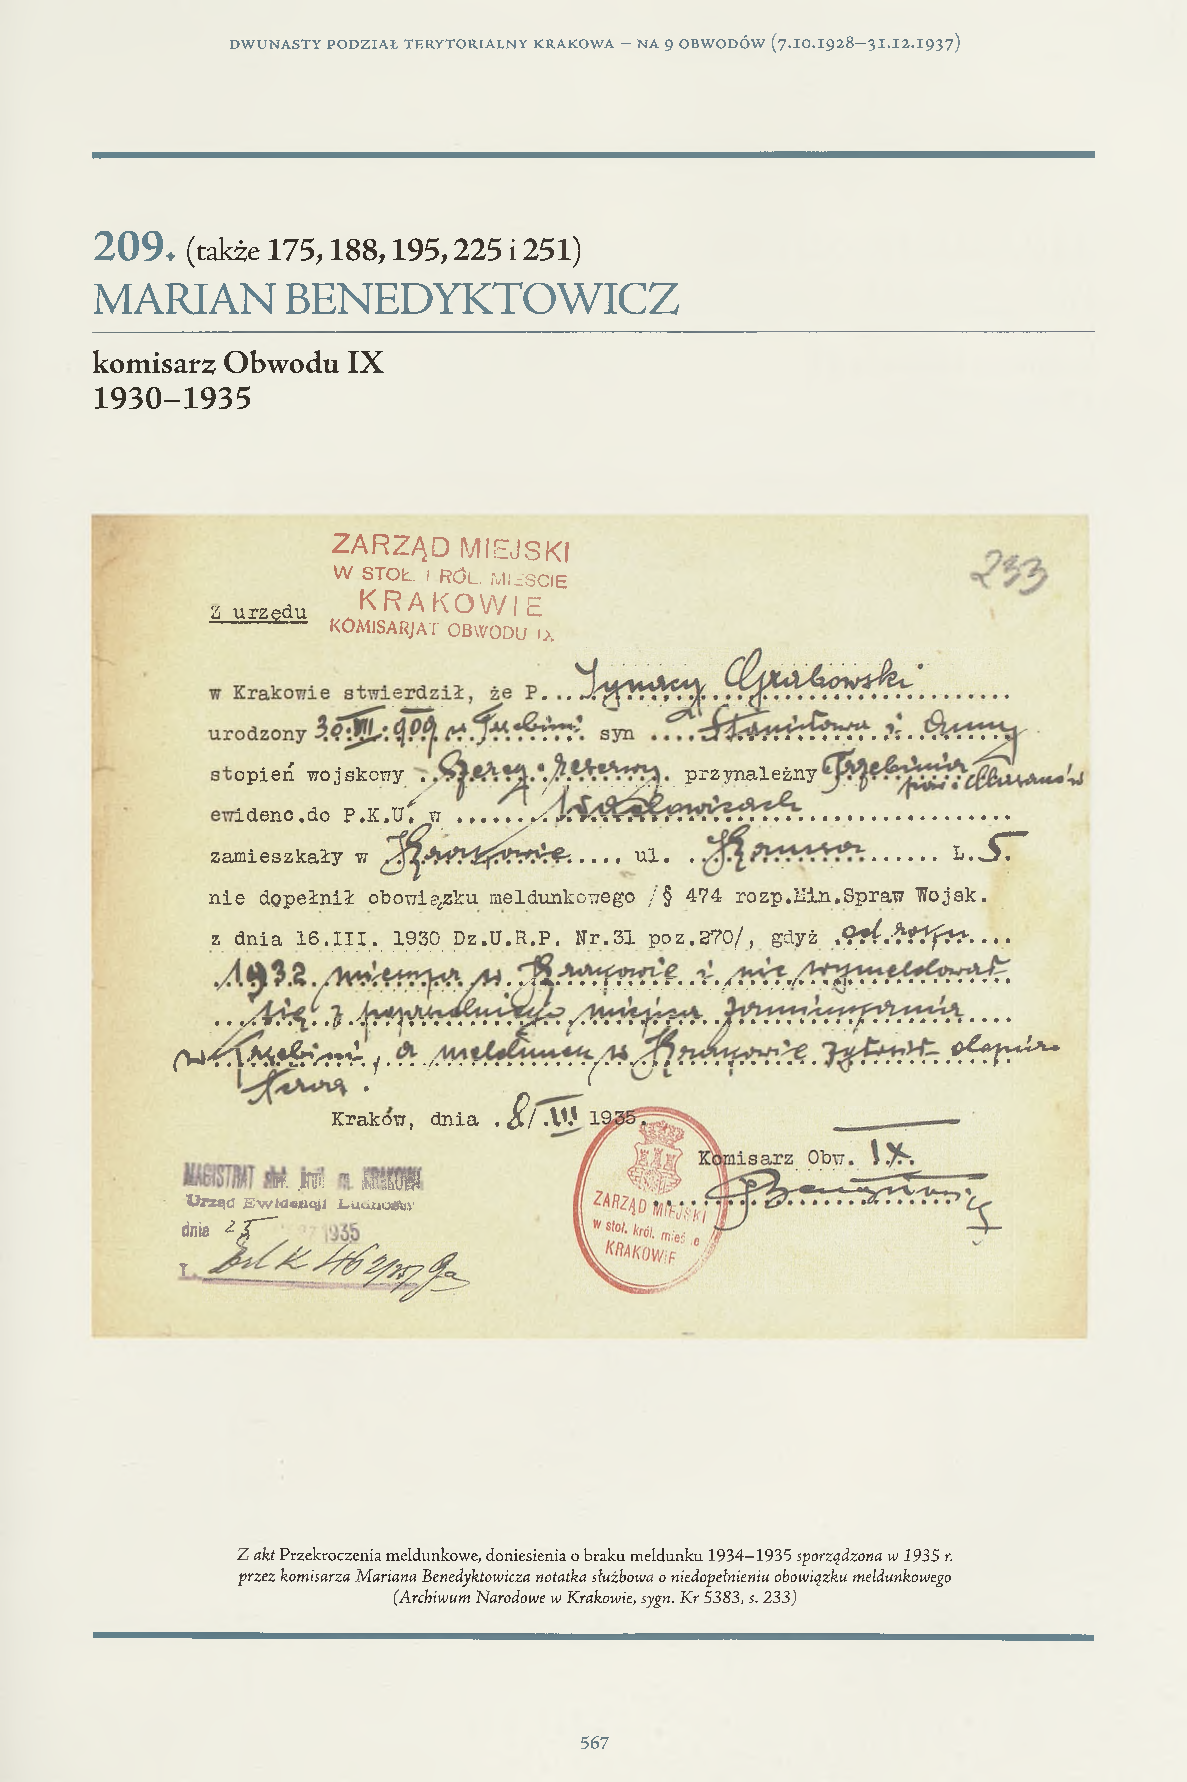 DWUNASTY PODZIAŁ TERYTORIALNY KRAKOWA – NA 9 OBWODÓW (7.10.1928–31.12.1937)
209. (także 175, 188, 195, 225 i 251)
MARIAN BENEDYKTOWICZ
komisarz Obwodu IX
1930–1935
ZARZĄD MIEJSKI
W STOŁ. I KRÓL. MIEŚCIE
KRAKOWIE
KOMISARJAT OBWODU IX
233
Z urzędu
w Krakowie stwierdził, że P... Ignacy Grabowski
urodzony 30.VII.909 w Trzebini syn .... Stanisława i Anny
stopień wojskowy .. Szereg. rezerwy. przynależny Trzebinia pow. Chrzanów
ewidenc.do P.K.U. w ...... Wadowicach
zamieszkały w Krakowie .... ul. ... L.5.
nie dopełnił obowiązku meldunkowego /§ 474 rozp.Min.Spraw Wojsk.
z dnia 16.III. 1930 Dz.U.R.P. Nr.31 poz.270/, gdyż od roku
1932 mieszka w Krakowie i nie wymeldował
się z poprzedniego miejsca zamieszkania
w Trzebini, a meldunek w Krakowie zgłosił dopiero
teraz.
Kraków, dnia . 8/.III 1935.
Komisarz Obw. IX.
MAGISTRAT stoł. król. m. KRAKOWA
Urząd Ewidencji Ludności
dnia 25 1935
L.
ZARZĄD MIEJSKI
w stoł. król. mieście
KRAKOWIE
Z akt Przekroczenia meldunkowe, doniesienia o braku meldunku 1934–1935 sporządzona w 1935 r.
przez komisarza Mariana Benedyktowicza notatka służbowa o niedopełnieniu obowiązku meldunkowego
(Archiwum Narodowe w Krakowie, sygn. Kr 5383, s. 233)
567